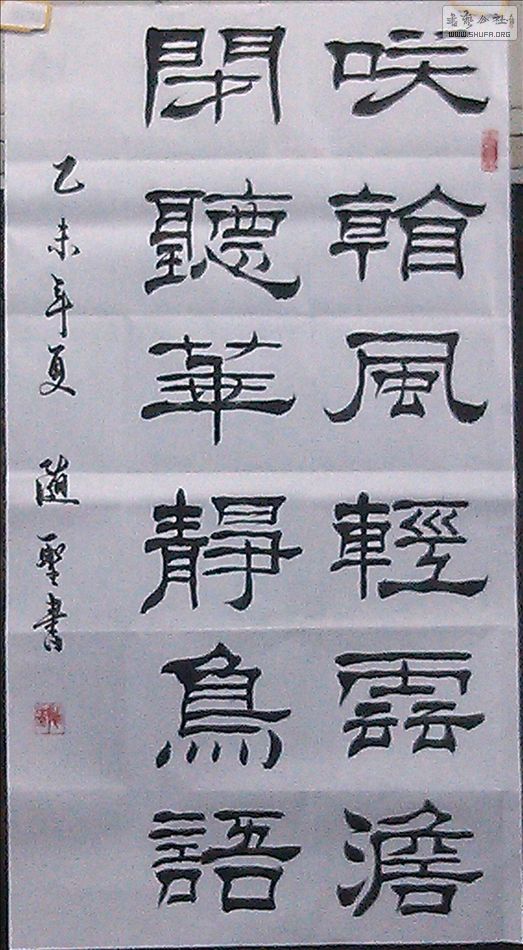 書藝公社
WWW.SHUFA.ORG
咲風輕雲澹
閑聽華靜鳥語
乙未年夏 随聖書